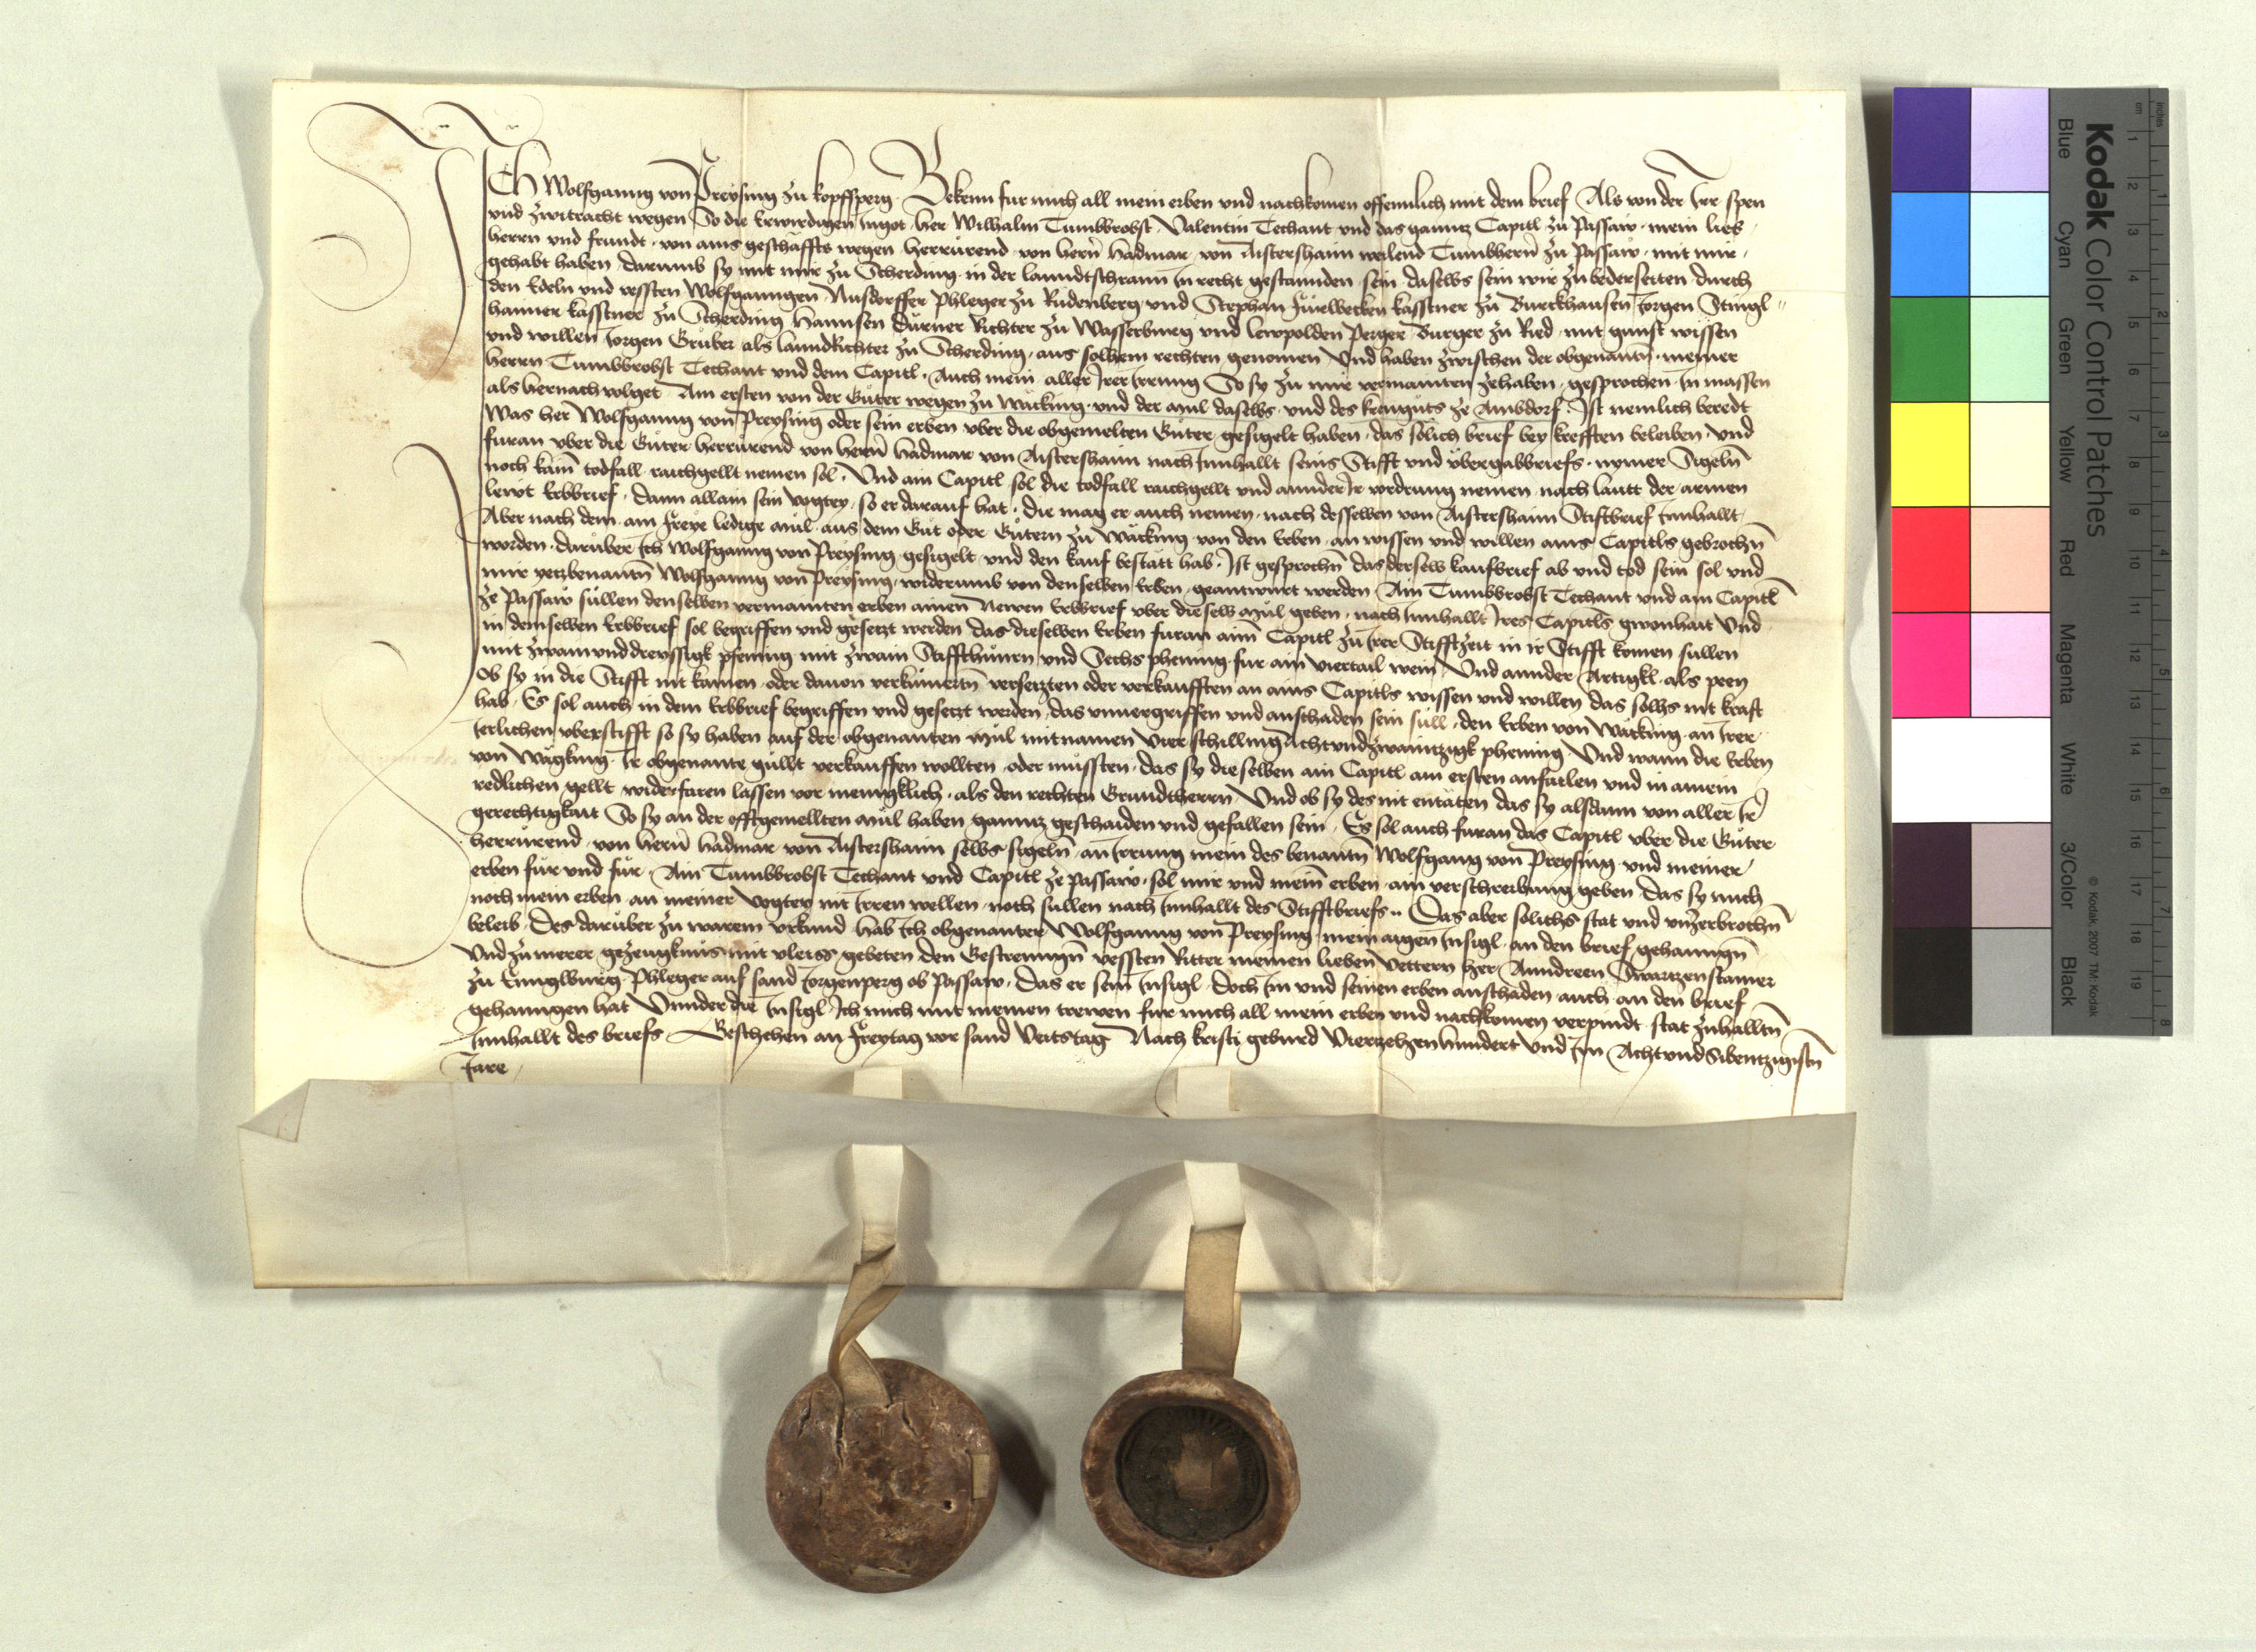 ICh Wolfganng von Preysing zu kopfsperg Bekenn fur mich all mein erben und nachkomen offennlich mit dem brief Als von der Irr spen
und zwitracht wegen So die Erwirdigen in got her Wilhalm Tumbbrobst Valentin Techant und das ganntz Capitl zu Passaw mein lieb
herrn und frundt von ains geschäffts wegen herrürend von hern hadmar von Aistershaim weilend Tumbhern zu Passaw mit mir
gehabt haben darumb sy mit mir zu Scherding in der lanndtschrann in recht gestannden sein daselbs sein wir zu bederseiten durch
den Edeln und vessten Wolfganngen Nusdorffer Phleger zu Ridenberg und Stephan kasstner zu Burckhausen Jorgen Stingl
haimer kasstner zu Scherding hannsen Dürner Richter zu Wasserburg und lewpolden Perger Burger zu Ried mit gunst wissen
und willen Jorgen Gruber als lanndrichter zu Scherding aus solhem rechten genomen Und haben zwischen der obgenantn meiner
herrn Tumbbrobst Techant und dem Capitl Auch mein aller Irer Irrung So sy zu mir vermainten zehaben gesprochen in massen
als hernach volget Am ersten von der Güter wegen zu Wäcking und der mul daselbs und des ze Ambdorf Ist nemlich beredt
Was her Wolfganng von Preysing oder sein erben vber die obgemelten Güter gesigelt haben das solich brief bey krefften beleiben Und
furan vber die Güter herrürend von hern hadmar von Aistershaim nach Innhallt seins Stifft und übergabbriefs nymer Sigeln
noch kain todfall raichgellt nemen sol Und ain Capitl sol die todfall raichgellt und annder Ir vordrung nemen nach lautt der armen
lewt Erbbrief Dann allain sein vogtey so er darauf hat die mag er auch nemen nach desselben von Aistershaim Stiftbrief Innhallt
Aber nach dem ain freye ledige mül aus dem Gut oder Gütern zu Wäcking von den Erben an wissen und willen ains Capitls gebrochn
worden darüber Ich Wolfganng von Preysing gesigelt und den kauf bestätt hab Ist gesprochn das derselb kaufbrief ab und tod sein sol und
mir yetzbenantn Wolfganng von Preysing widerumb von denselben Erben geantwurt werden Ain Tumbbrobst Techant und ain Capitl
ze Passaw sullen denselben vermainten erben ainen Newen Erbbrief vber dieselb mül geben nach Innhallt Ires Capitls gwonhait Und
in demselben Erbbrief sol begriffen und gesetzt werden das dieselben Erben furan aim Capitl zu Irer Stifftzeit in ir Stifft komen sullen
mit zwainunddreyssigk pfening mit zwain Stiffthünrn und Sechs phening fur ain viertail wein Und annder Artigkl als peen
Ob sy in die Stifft nit kämen oder dauon verkümertn versetzten oder verkaufften an ains Capitls wissen und willen das solhs nit kraft
hab Es sol auch in dem Erbbrief begriffen und gesetzt werden das vnuergriffen und anschaden sein süll den Erben von Wäcking an Irer
Ierlichen vberstifft so sy haben auf der obgenanten mül mitnamen Vier schilling Achtundzwaintzigk phening Und wann die Erben
von Wägking Ir obgenante güllt verkauffen wollten oder müssten das sy dieselben ain Capitl am ersten anfailen und in ainem
redlichen gellt widerfaren lassen vor menigklich als den rechten Grundtherrn Und ob sy des nit entäten das sy alsdann von aller Ir
gerechtigkait So sy an der offtgemellten mül haben ganntz geschaiden und gefallen sein Es sol auch furan das Capitl vber die Güter
herrürend von hern hadmar von Aistershaim selbs sigeln an Irrung mein des benantn Wolfgang von Preysing und meiner
erben fur und fur Ain Tumbbrobst Techant und Capitl ze passaw sol mir und mein erben ain verschreibung geben das sy mich
noch mein erben an meiner vogtey nit Irren wellen noch sullen nach Innhallt des Stifftbriefs Das aber solichs stat und unzerbrochn
beleib Des darüber zu warem urkund hab Ich obgenanter Wolfganng von Preysing mein aigen Insigl an den brief gehanngn
Und zu merer getzeugknus mit vleiss gebeten den Gestrenngn vessten Ritter meinen lieben Vettern her Anndreen Swartzenstainer
zu Phleger auf sand Jorgenperg ob Passaw Das er sein Insigl Doch im und seinen erben anschaden auch an den brief
gehanngen hat Unnder die Insigl Ich mich mit meinen trewen fur mich all mein erben und nachkomen verpindt stat zuhalltn
Innhallt des briefs Beschehen an freytag vor sand Veitstag Nach kristi geburd Viertzehenhundert und Im Achtundsibentzigistn
Jare
Kodak Color Control Patches
Blue Cyan Green Yellow Red Magenta White 3/Color Black
© Kodak 2007 TM: Kodak
cm 1 2 3 4 5 6 7 8 9 10 11 12 13 14 15 16 17 18 19
inches 1 2 3 4 5 6 7 8